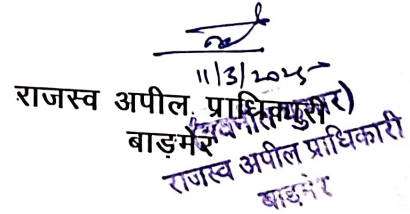 11/3/2025
राजस्व अपील प्राधिकारी
बाड़मेर
राजस्व अपील प्राधिकारी
बाड़मेर